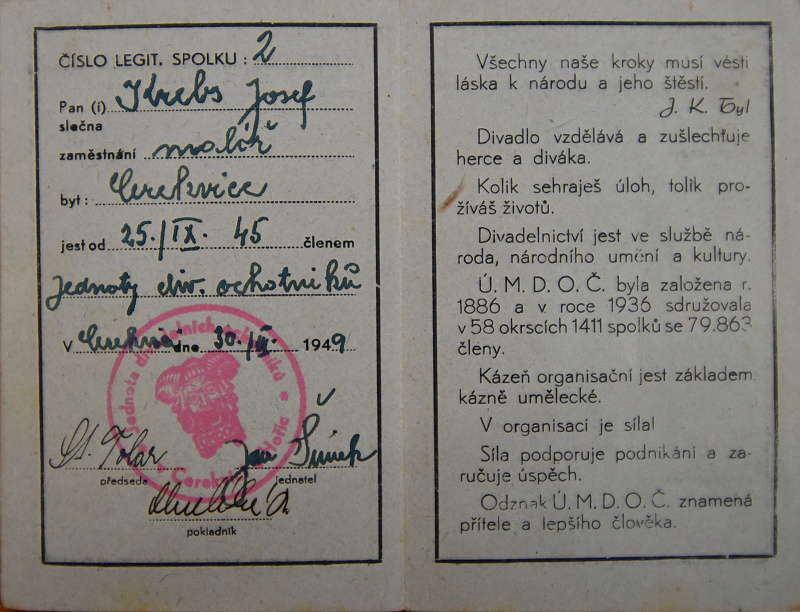 ČÍSLO LEGIT. SPOLKU : 2
Pan (í) Krebs Josef
slečna
zaměstnání malíř
byt: Cerekvice
jest od 25./IX. 45 členem
Jednoty div. ochotníků
V dne 30./ 1949
Jednota divadelních ochotníků
St. Tolar Jan Šimek
předseda jednatel
pokladník
Všechny naše kroky musí vésti
láska k národu a jeho štěstí.
J. K. Tyl
Divadlo vzdělává a zušlechťuje
herce a diváka.
Kolik sehraješ úloh, tolik pro-
žíváš životů.
Divadelnictví jest ve službě ná-
roda, národního umění a kultury.
Ú. M. D. O. Č. byla založena r.
1886 a v roce 1936 sdružovala
v 58 okrscích 1411 spolků se 79.863
členy.
Kázeň organisační jest základem
kázně umělecké.
V organisaci je síla!
Síla podporuje podnikání a za-
ručuje úspěch.
Odznak Ú. M. D. O. Č. znamená
přítele a lepšího člověka.